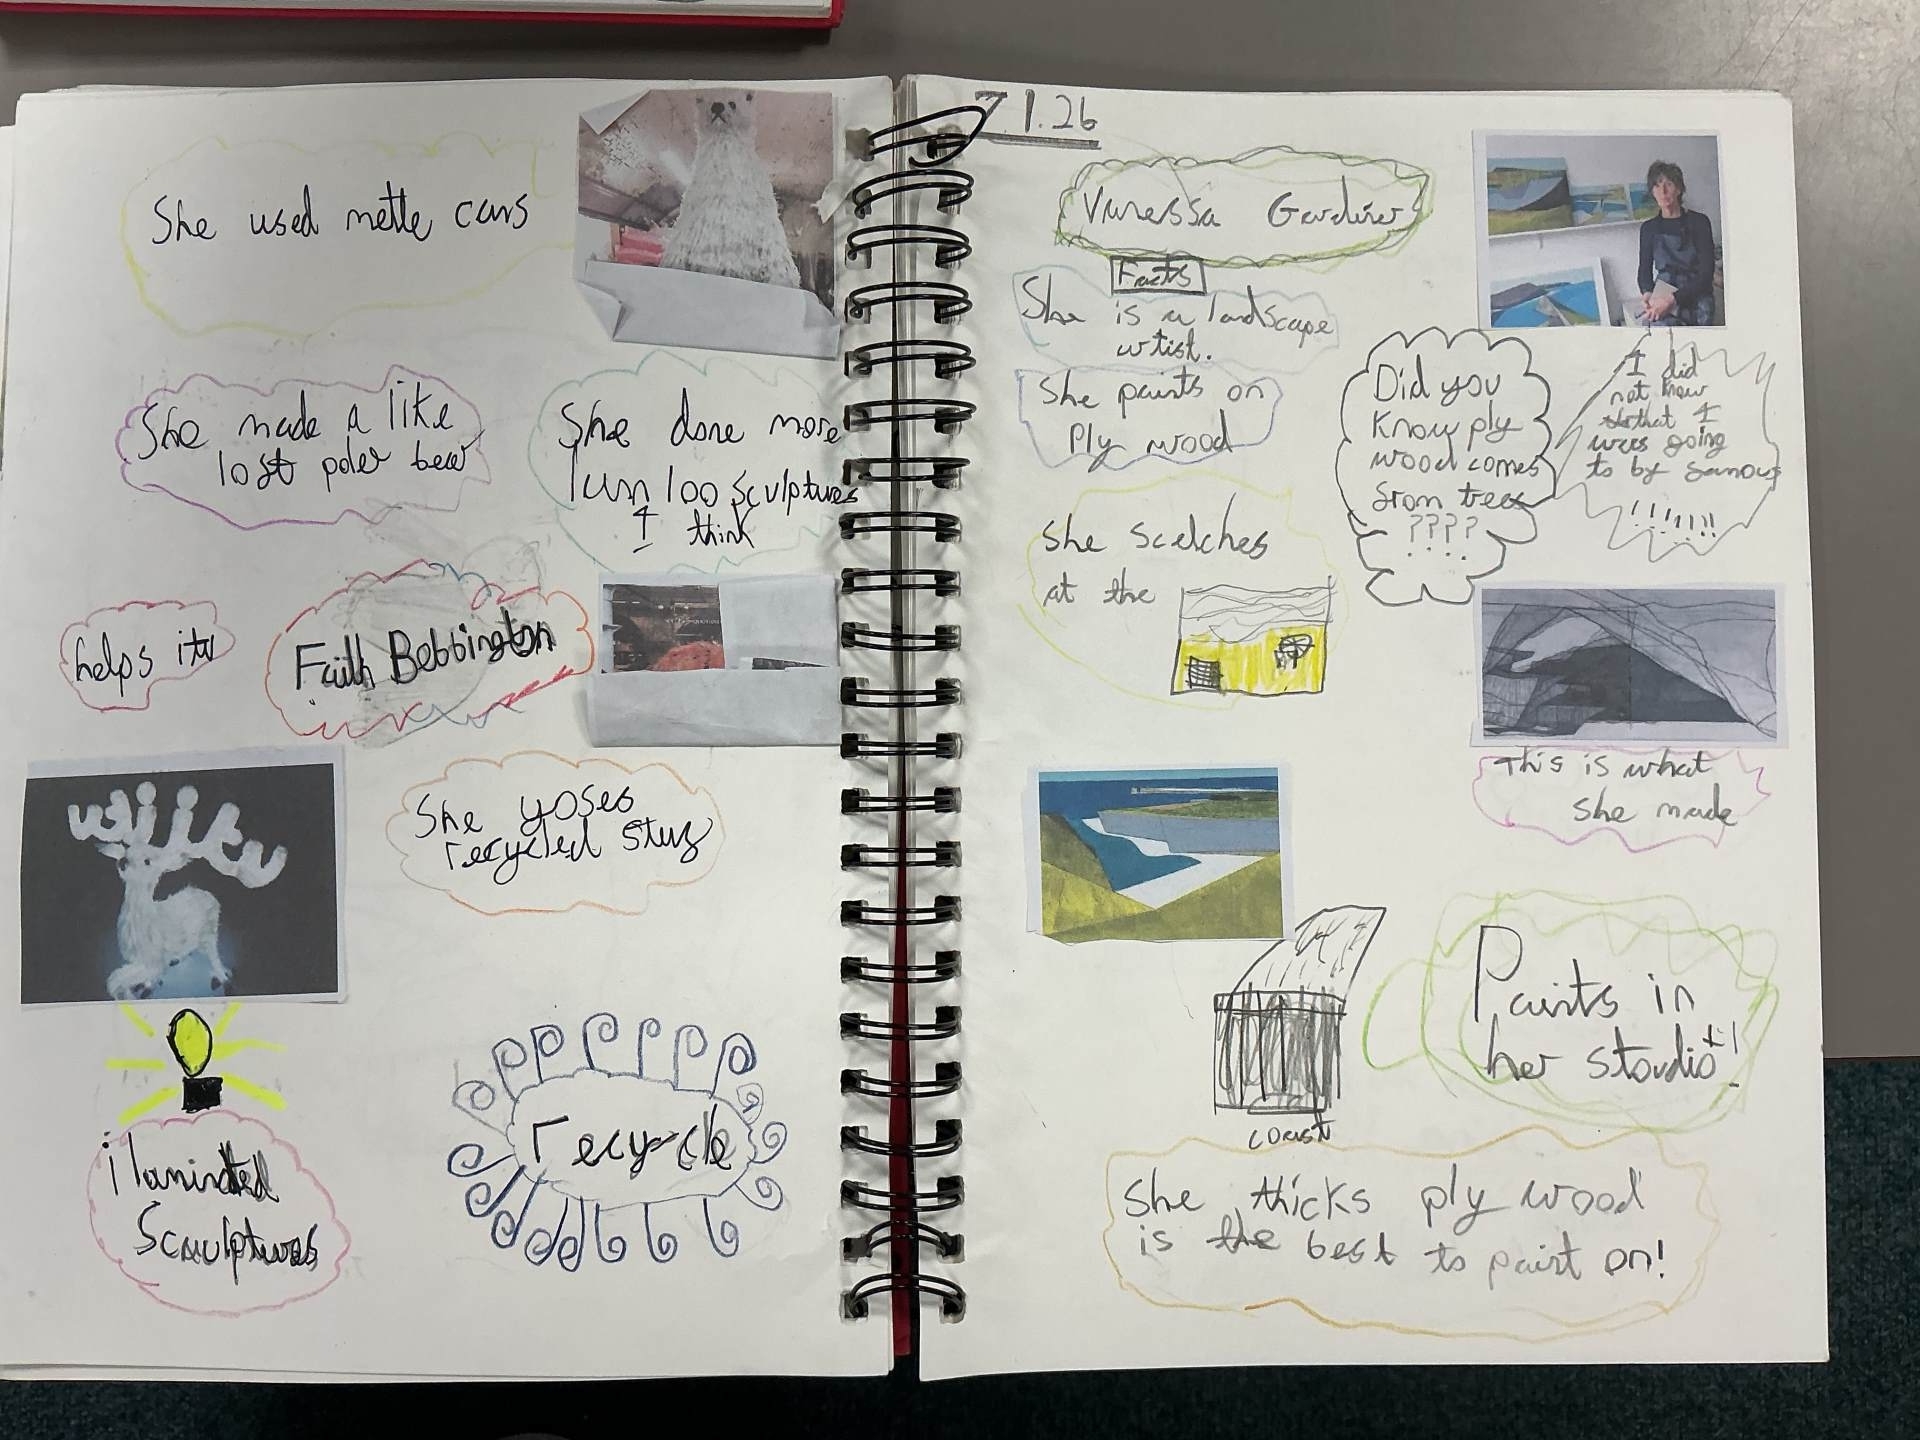 She used mettle cans
She made a like
lost poler bear
She done more
1un 100 sculptures
I think
helps itu
Faith Bebbington
She yoses
recycled stuf
recycle
iluminated
Scculptures
7.1.26
Vanessa Gardiner
Facts
She is a landscape
artist.
She paints on
Ply wood
She scetches
at the
Did you
know ply
wood comes
from trees
????
I did
not know
that I
was going
to by famous
!!!!!!!
This is what
she made
coast
Paints in
her stoudio!
She thicks ply wood
is the best to paint on!